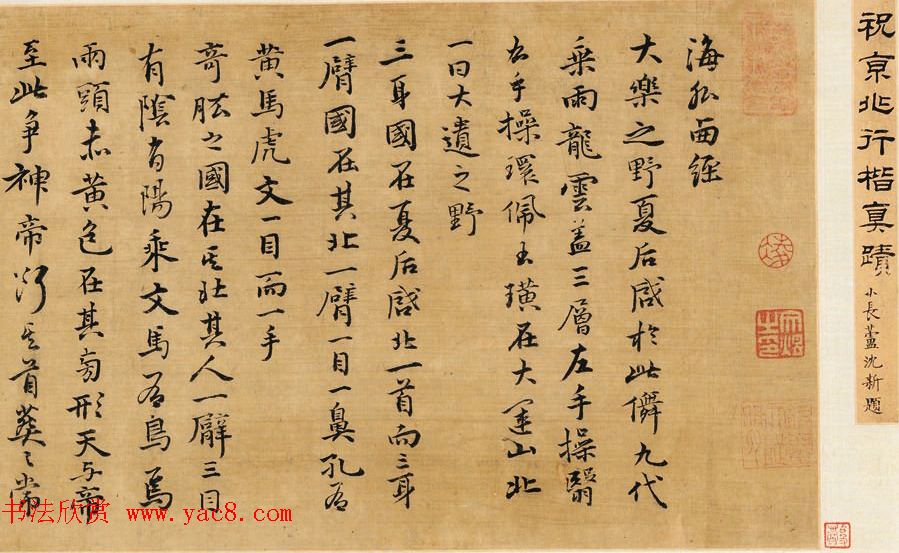 祝京兆行楷真蹟
小長蘆沈新題
海外西經
大樂之野夏后啓於此儛九代
乘兩龍雲蓋三層左手操翳
右手操環佩玉璜在大運山北
一曰大遺之野
三身國在夏后啓北一首而三身
一臂國在其北一臂一目一鼻孔有
黃馬虎文一目而一手
奇肱之國在其北其人一臂三目
有陰有陽乘文馬有鳥焉
兩頭赤黃色在其旁形天与帝
至此爭神帝斷其首葬之常
书法欣赏 www.yac8.com